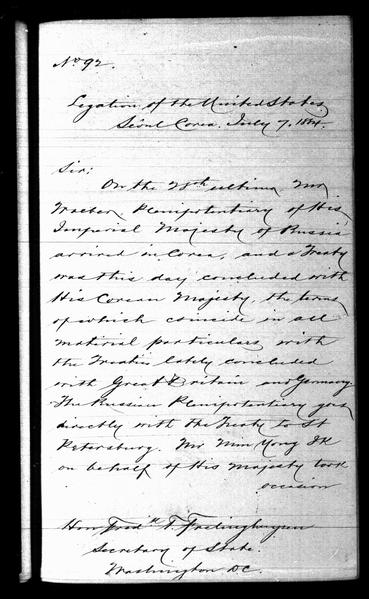 No 92.
Legation of the United States.
Séoul Corea. July 7, 1884.
Sir:
On the 25th ultimo Mr
Waeber, Plenipotentiary of His
Imperial Majesty of Russia
arrived in Corea, and a Treaty
was this day concluded with
His Corean Majesty, the terms
of which coincide in all
material particulars, with
the Treaties lately concluded
with Great Britain and Germany.
The Russian Plenipotentiary goes
directly with the Treaty to St
Petersburg. Mr Min Yong Ik
on behalf of His Majesty took
occasion
Hon Fredk T. Frelinghuysen
Secretary of State.
Washington D.C.